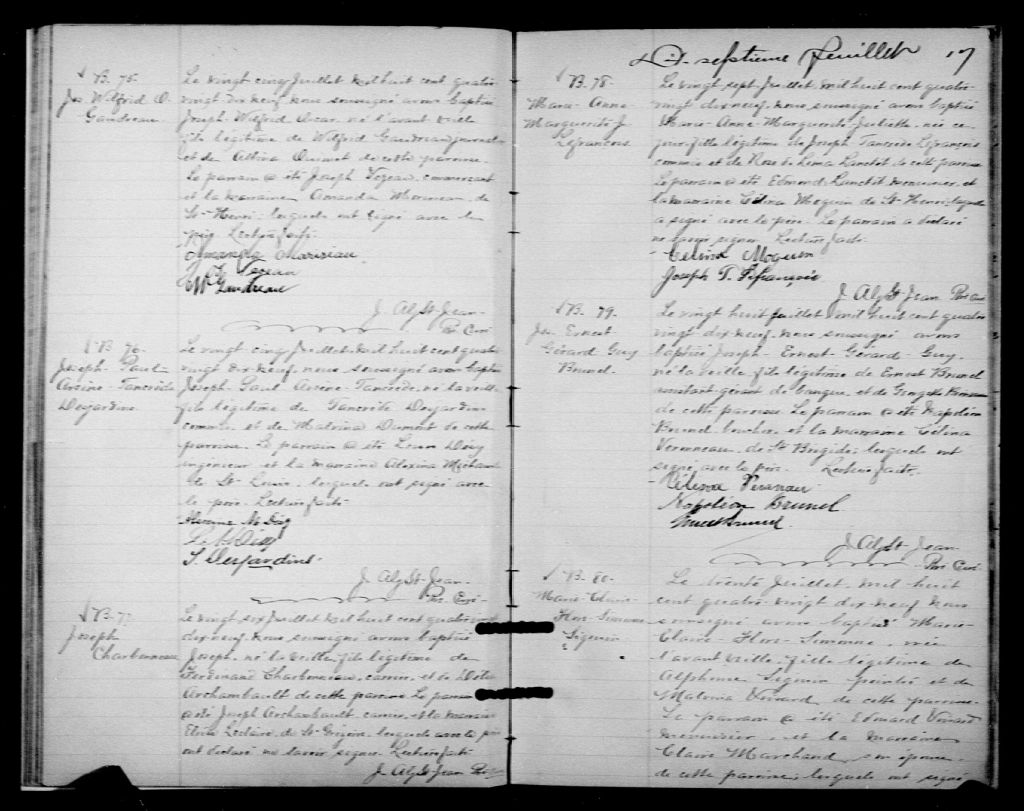 B. 75.
Jos. Wilfrid O.
Gaudreau
Le vingt cinq Juillet mil huit cent quatre
vingt dix neuf nous soussigné avons baptisé
Joseph Wilfrid Oscar né l'avant veille
fils légitime de Wilfrid Gaudreau journalier
et de Albina Ouimet de cette paroisse
Le parrain a été Joseph Vezeau commerçant
et la marraine Amanda Morineau de
St-Henri lesquels ont signé avec le
père. Lecture faite.
Amanda
Jos Vezeau
W Gaudreau
J. Alp. St-Jean
Ptr. Curé
B 76
Joseph Paul
Arsène Tancrède
Desjardins
Le vingt cinq Juillet mil huit cent quatre
vingt dix neuf, nous soussigné avons baptisé
Joseph Paul Arsène Tancrède, né la veille
fils légitime de Tancrède Desjardins
commis et de Malvina Dumont de cette
paroisse. Le parrain a été
ingénieur et la marraine Alexina
de St-Louis, lesquels ont signé avec
le père. Lecture faite
T. Desjardins
J. Alp. St-Jean
Ptr. Curé
B. 77
Joseph
Charbonneau
Le vingt six Juillet mil huit cent quatre vingt
dix neuf, nous soussigné avons baptisé
Joseph, né la veille, fils légitime de
Ferdinand Charbonneau, carrier, et de
Archambault de cette paroisse. Le parrain
a été Joseph Archambault carrier, et la marraine
Leclaire, de St-Grégoire, lesquels avec le père
ont déclaré ne savoir signer. Lecture faite
J. Alp. St-Jean Ptr
Dix septième feuillet 17
B. 78.
Marie-Anne
Marguerite J.
Lefrançois
Le vingt sept Juillet mil huit cent quatre
vingt dix neuf, nous soussigné avons baptisé
Marie-Anne Marguerite Juliette, née ce
jour, fille légitime de Joseph Tancrède Lefrançois
commis et de Rose de Lima Lanctôt de cette paroisse
Le parrain a été Edmond Lanctôt menuisier, et
la marraine Célina Moquin de St-Henri, laquelle
a signé avec le père. Le parrain a déclaré
ne savoir signer. Lecture faite.
Célina Moquin
Joseph T. Lefrançois
J. Alp. St-Jean Ptr Curé
B. 79.
Jos. Ernest
Gérard Guy
Brunel
Le vingt huit Juillet, mil huit cent quatre
vingt dix neuf, nous soussigné avons
baptisé Joseph-Ernest-Gérard-Guy,
né la veille fils légitime de Ernest Brunel
assistant gérant de banque et de
de cette paroisse Le parrain a été Napoléon
Brunel boucher et la marraine Célina
Verronneau, de St Brigide, lesquels ont
signé avec le père. Lecture faite.
Célina
Napoléon Brunel
Ernest Brunel
J. Alp. St-Jean
Ptr. Curé
B. 80.
Marie-Claire
Flore-Simonne
Séguin
Le trente Juillet, mil huit
cent quatre vingt dix neuf nous
soussigné avons baptisé Marie-
Claire-Flore-Simonne, née
l'avant veille, fille légitime de
Alphonse Séguin peintre et de
Malvina Venard, de cette paroisse.
Le parrain a été Edmond Venard
menuisier, et la marraine
Claire Marchand, son épouse,
de cette paroisse, lesquels ont signé